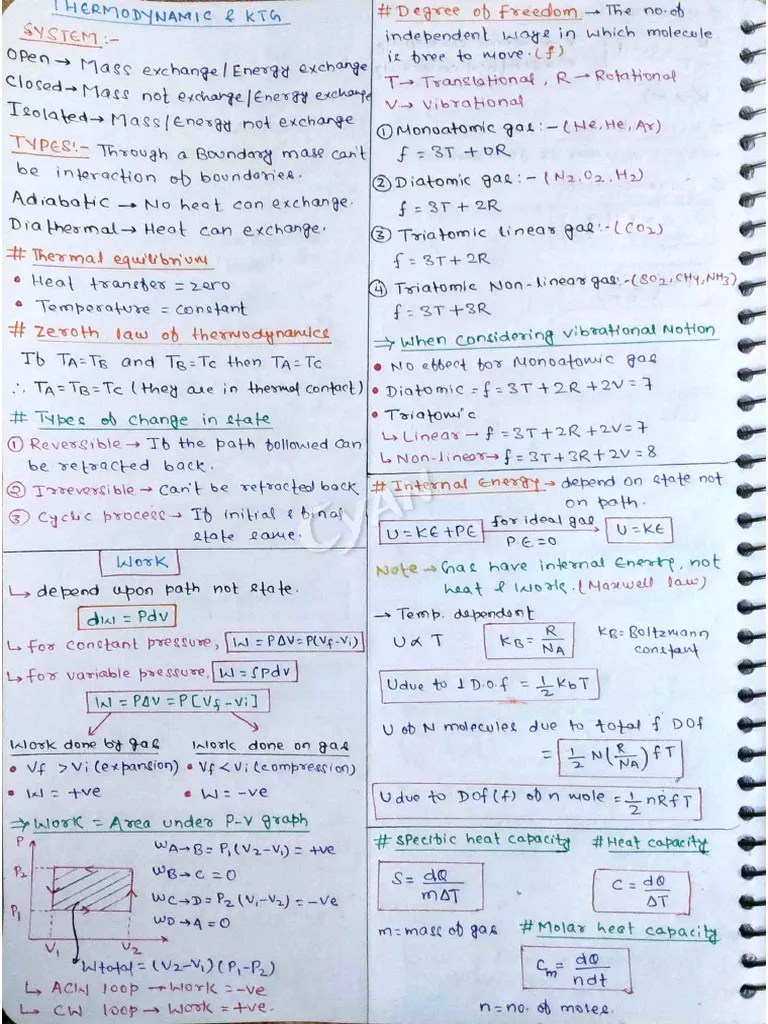 THERMODYNAMIC & KTG
SYSTEM:-
Open → Mass exchange/Energy exchange
Closed → Mass not exchange/Energy exchange
Isolated → Mass/Energy not exchange
TYPES:- Through a Boundary mass can't
be interaction of boundaries.
Adiabatic → No heat can exchange.
Diathermal → Heat can exchange.
# Thermal equilibrium
• Heat transfer = zero
• Temperature = constant
# Zeroth law of thermodynamics
If TA=TB and TB=TC then TA=TC
∴ TA=TB=TC (they are in thermal contact)
# Types of change in state
① Reversible → If the path followed can
be retracted back.
② Irreversible → Can't be retracted back
③ Cyclic process → If initial & final
state same.
Work
↳ depend upon path not state.
dW = PdV
↳ for constant pressure, W = PΔV = P(Vf-Vi)
↳ for variable pressure, W = ∫PdV
W = PΔV = P[Vf-Vi]
Work done by gas Work done on gas
• Vf > Vi (expansion) • Vf < Vi (compression)
• W = +ve • W = -ve
⇒ Work = Area under P-V graph
P
P2
P1
V1 V2 V
WA→B = P1(V2-V1) = +ve
WB→C = 0
WC→D = P2(V1-V2) = -Ve
WD→A = 0
Wtotal = (V2-V1)(P1-P2)
↳ ACW loop → Work = -ve
↳ CW loop → Work = +ve.
# Degree of freedom → The no. of
independent ways in which molecule
is free to move. (f)
T → Translational, R → Rotational
V → Vibrational
① Monoatomic gas:- (Ne, He, Ar)
f = 3T + 0R
② Diatomic gas:- (N2, O2, H2)
f = 3T + 2R
③ Triatomic linear gas:- (CO2)
f = 3T + 2R
④ Triatomic Non-linear gas:- (SO2, CH4, NH3)
f = 3T + 3R
⇒ When considering vibrational Motion
• No effect for Monoatomic gas
• Diatomic = f = 3T + 2R + 2V = 7
• Triatomic
↳ Linear → f = 3T + 2R + 2V = 7
↳ Non-linear → f = 3T + 3R + 2V = 8
# Internal Energy → depend on state not
on path.
U = KE + PE for ideal gas P.E = 0 U = KE
Note → Gas have internal Energy, not
heat & work. (Maxwell law)
→ Temp. dependent
U ∝ T KB = R/NA KB = Boltzmann
constant
U due to 1 D.o.f = 1/2 KbT
U of N molecules due to total 'f' DOf
= 1/2 N(R/NA) fT
U due to DOf(f) of n mole = 1/2 nRfT
# Specific heat capacity # Heat capacity
S = dQ/mΔT C = dQ/ΔT
m = mass of gas # Molar heat capacity
Cm = dQ/ndt
n = no. of moles.
Cyan